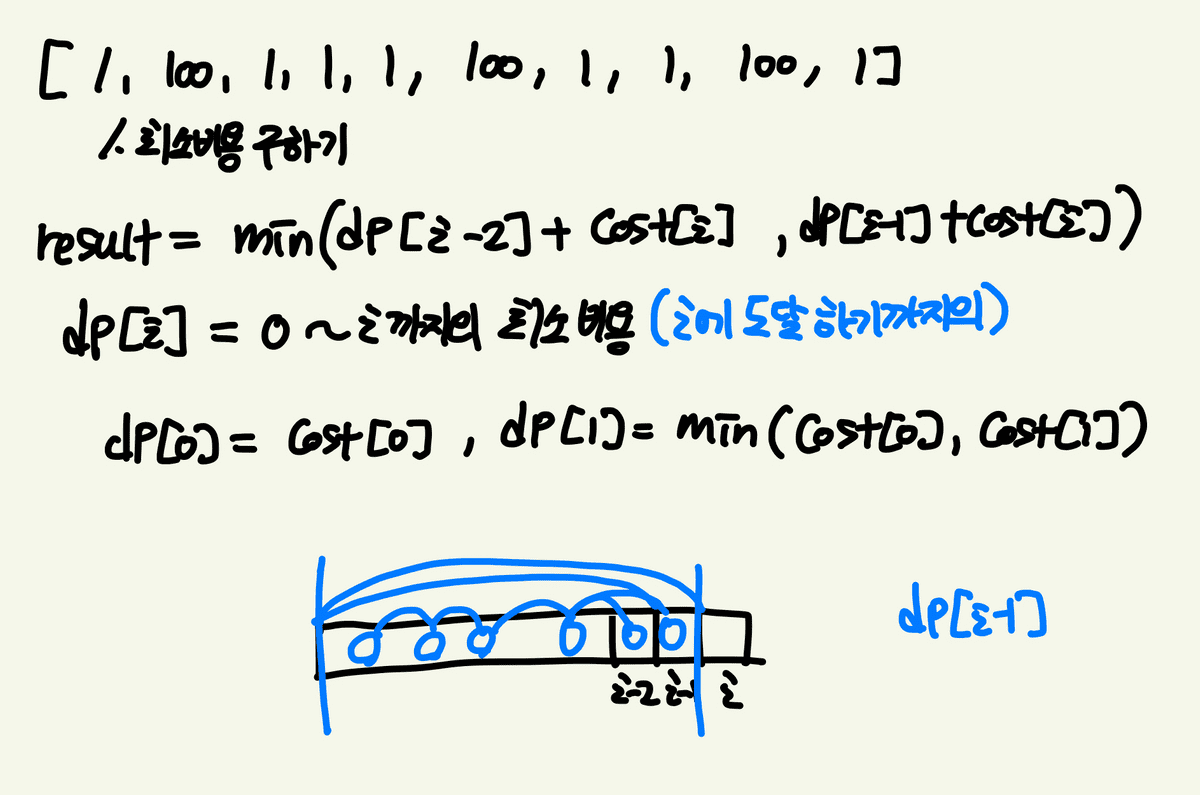 [ 1, 100, 1, 1, 1, 100, 1, 1, 100, 1]
1. 최소비용 구하기
result = min(dp[i-2] + cost[i], dp[i-1] + cost[i])
dp[i] = 0 ~ i까지의 최소 비용 (i에 도달하기까지의)
dp[0] = cost[0], dp[1] = min(cost[0], cost[1])
dp[i-1]
i-2 i-1 i